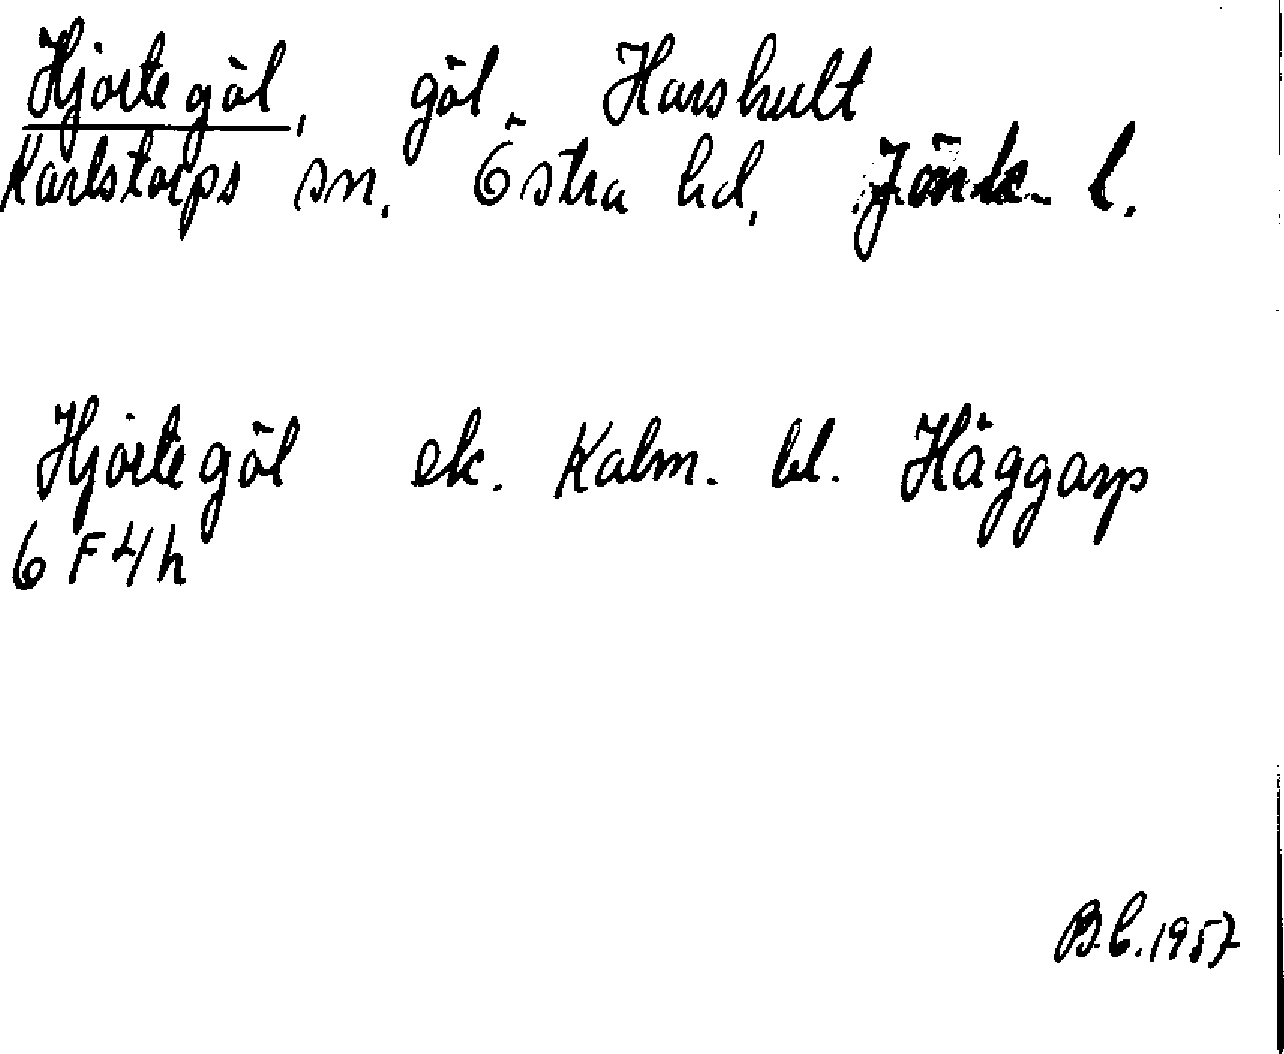 Hjortegöl, göl Harshult
Karlstorps sn. Östra hd. Jönk. l.
Hjortegöl ek. Kalm. bl. Häggarp
6 F 4h
B.C. 1957